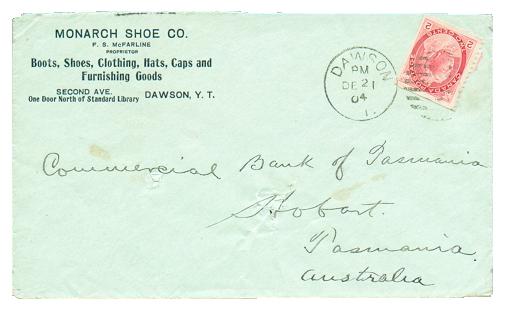 MONARCH SHOE CO.
F. S. McFARLINE
PROPRIETOR
Boots, Shoes, Clothing, Hats, Caps and
Furnishing Goods
SECOND AVE.
One Door North of Standard Library
DAWSON, Y. T.
DAWSON
PM
DE 21
04
1.
2 2
Commercial Bank of Tasmania
Hobart.
Tasmania.
Australia